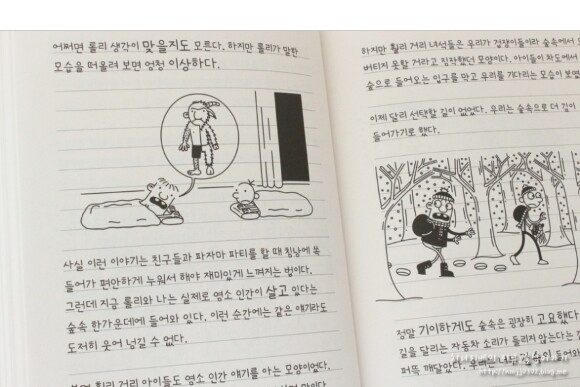 어쩌면 롤리 생각이 맞을지도 모른다. 하지만 롤리가 말한
모습을 떠올려 보면 엄청 이상하다.
사실 이런 이야기는 친구들과 파자마 파티를 할 때 침낭에 쏙
들어가 편안하게 누워서 해야 재미있게 느껴지는 법이다.
그런데 지금 롤리와 나는 실제로 염소 인간이 살고 있다는
숲속 한가운데에 들어와 있다. 이런 순간에는 같은 얘기라도
도저히 웃어 넘길 수 없다.
휠리 거리 아이들도 염소 인간 얘기를 아는 모양이었다.
하지만 휠리 거리 녀석들은 우리가 겁쟁이들이라 숲속에서 오
버티지 못할 거라고 짐작했던 모양이다. 아이들이 차도에서
숲으로 들어오는 입구를 막고 우리를 기다리는 모습이 보였
이제 달리 선택할 길이 없었다. 우리는 숲속으로 더 깊이
들어가기로 했다.
정말 기이하게도 숲속은 굉장히 고요했다
길을 달리는 자동차 소리가 들리지 않는다는
퍼뜩 깨달았다. 우리는 숲속